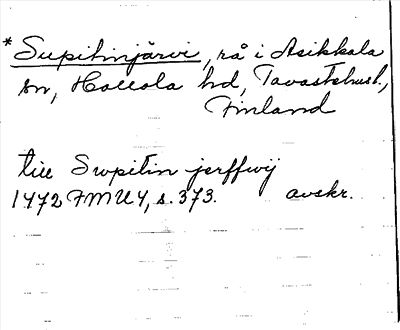 *Supitinjärvi, rå i Asikkala
sn, Hollola hd, Tavastehusl.,
Finland
till Swpitin jerffwij
1472 FMU 4, s. 373. avskr.